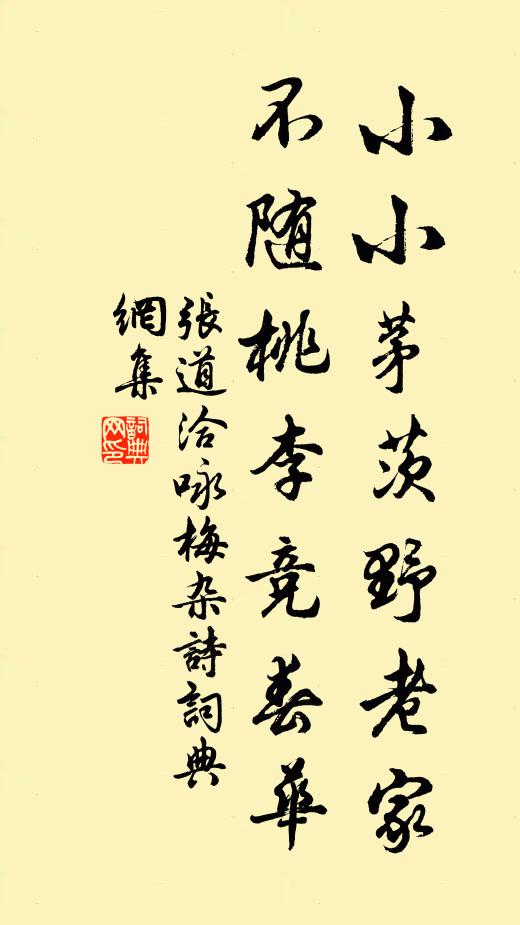 小小茅茨野老家
不随桃李竞春華
張道洽咏梅杂詩詞典
網集
詞典网印